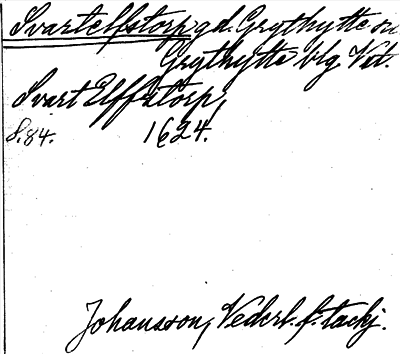 Svartelfstorp, gd. Grythytte sn
Grythytte blg. Vst.
Svart Elffztorp,
S. 84. 1624.
Johansson, Vederl. f. tackj.